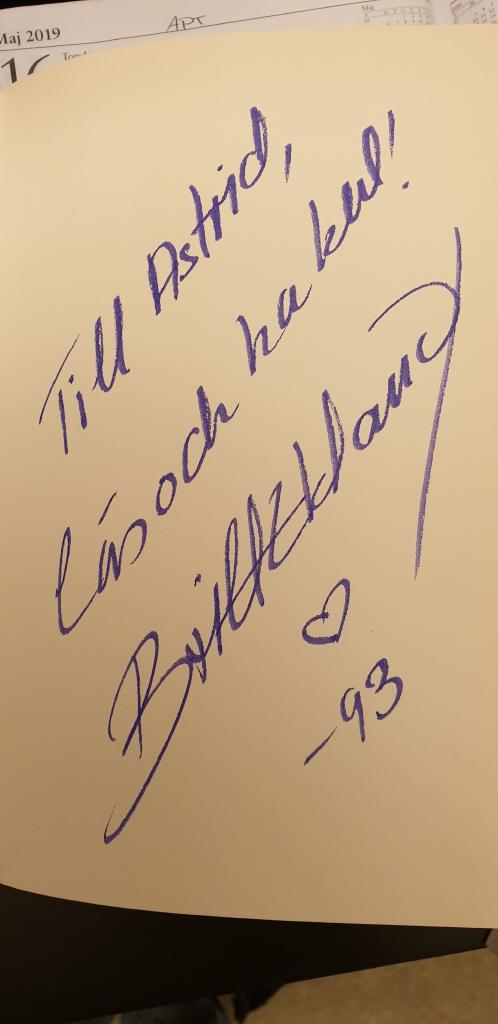 Maj 2019
APT
16
Till Astrid,
läs och ha kul!
Britt Ekland
♡
-93